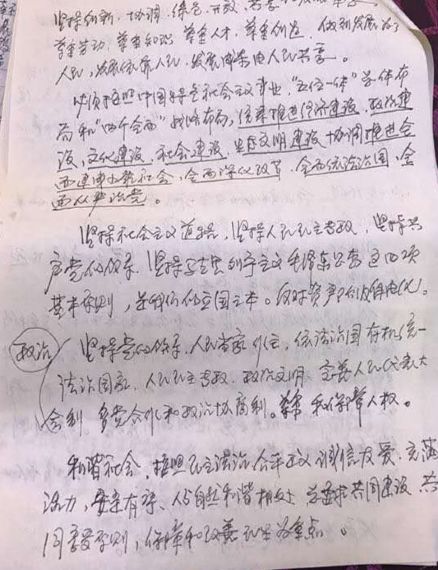 坚持创新、协调、绿色、开放、共享
尊重劳动、尊重知识、尊重人才、尊重创造，做到发展为了
人民，发展依靠人民，发展成果由人民共享。
必须按照中国特色社会主义事业，“五位一体”总体布
局和“四个全面”战略布局，统筹推进经济建设，政治建
设，文化建设，社会建设，生态文明建设，协调推进全
面建成小康社会，全面深化改革，全面依法治国，全
面从严治党。
坚持社会主义道路，坚持人民民主专政，坚持共
产党的领导，坚持马克思列宁主义毛泽东思想这四项
基本原则，是我们的立国之本。反对资产阶级自由化。
政治
坚持党的领导，人民当家作主，依法治国有机统一
法治国家，人民民主专政，政治文明，完善人民代表大
会制，多党合作和政治协商制。和保障人权。
和谐社会，按照民主法治，公平正义，诚信友爱，充满
活力，安定有序，人与自然和谐相处，共同建设，共
同享受原则，保障和改善民生为重点。